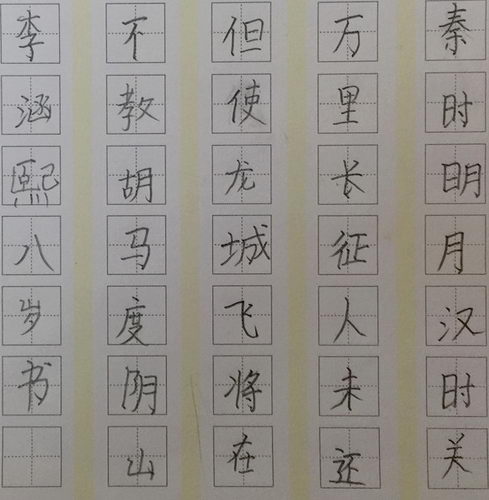 秦时明月汉时关
万里长征人未还
但使龙城飞将在
不教胡马度阴山
李涵熙八岁书